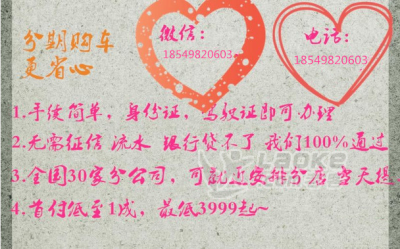 分期购车
更省心
微信：
18549820603
电话：
18549820603
1.手续简单，身份证，驾驶证即可办理
2.无需征信 流水 银行贷不了 我们100%通过
3.全国30家分公司，可就近安排分店 当天提
4.首付低至1成，最低3999起~